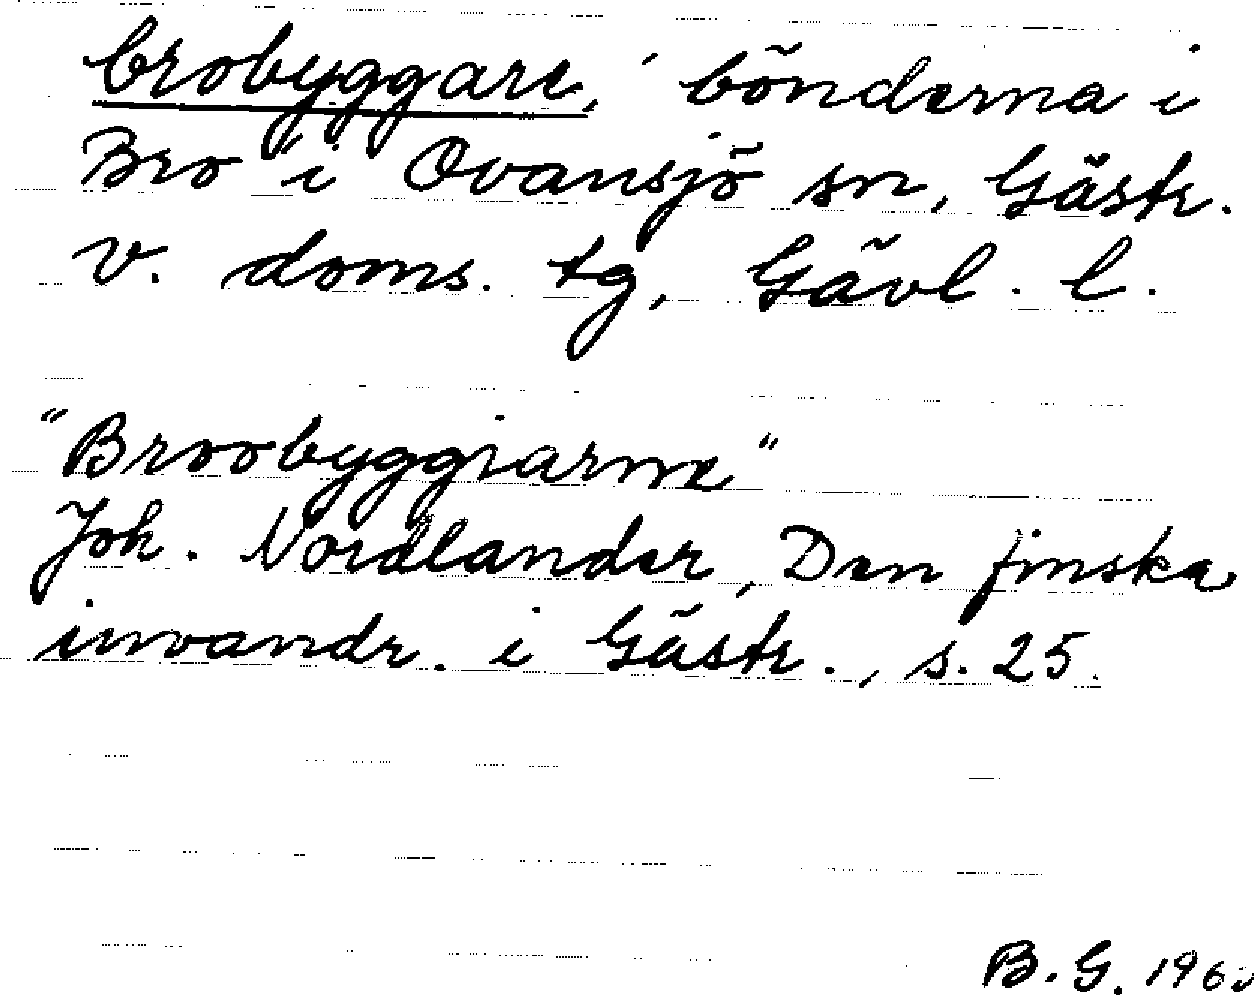 brobyggare, bönderna i
Bro i Ovansjö sn, Gästr.
v. doms. tg, Gävl. l.
"Broobyggiarna"
Joh. Nordlander, Den finska
invandr. i Gästr., s. 25.
B. G.